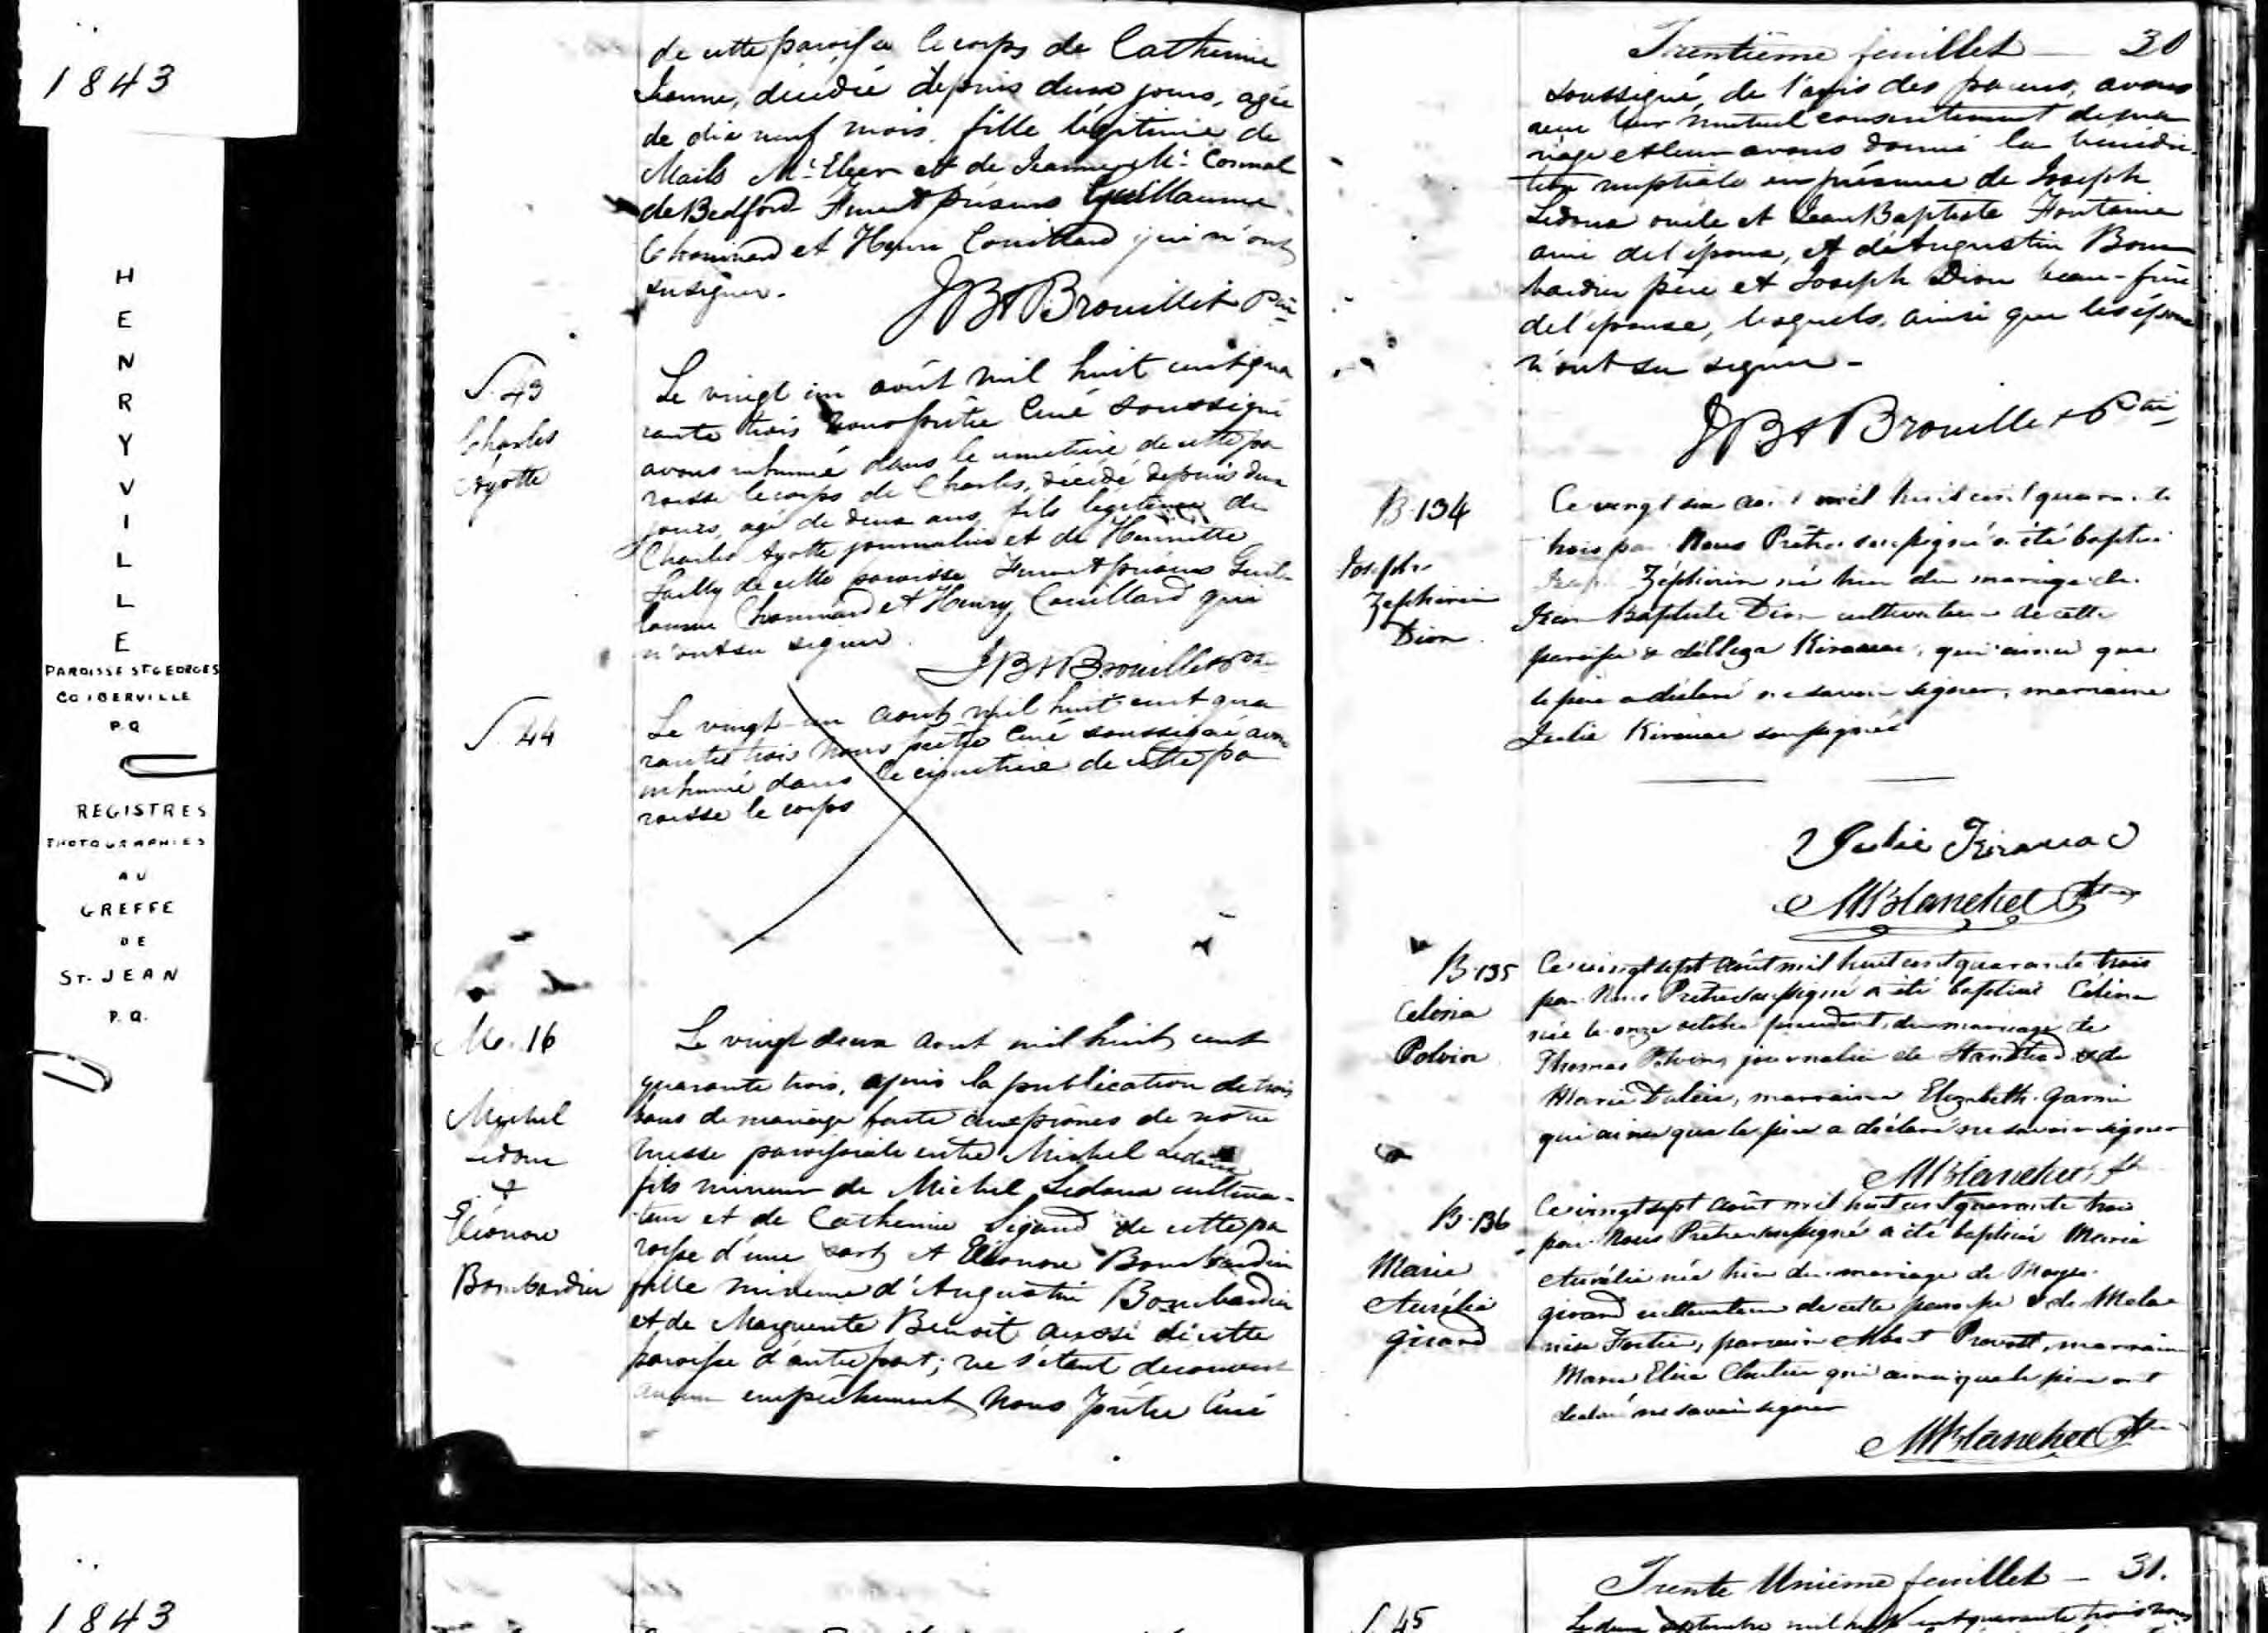 1843
HENRYVILLE
PAROISSE ST GEORGES
CO IBERVILLE
P.Q
REGISTRES
PHOTOGRAPHIES
AU
GREFFE
DE
ST. JEAN
P.Q.
1843
de cette paroisse le corps de Catherine
Jeanne, décédée depuis deux jours, agée
de dix neuf mois, fille légitime de
et de Jeanne
de Bedford Furent présens Guillaume
Chouinard et Henri Couillard qui n'ont
su signer.
JBA Brouillet Ptre
S. 43
Charles
Ayotte
Le vingt un août mil huit cent qua
rante trois nous prêtre Curé soussigné
avons inhumé dans le cimetière de cette pa
roisse le corps de Charles, décédé depuis deux
jours, agé de deux ans, fils légitime de
Charles Ayotte journalier et de Henriette
de cette paroisse Furent présens Guil-
laume Chouinard et Henry Couillard qui
n'ont su signer.
JBA Brouillet Ptre
S. 44
Le vingt-un aout mil huit cent qua
rante trois Nous prêtre Curé soussigné avons
inhumé dans le cimetière de cette pa
roisse le corps
M. 16
Michel
Ledoux
&
Eléonore
Bombardier
Le vingt deux aout mil huit cent
quarante trois, après la publication de trois
bans de mariage faite aux prônes de notre
messe paroissiale entre Michel Ledoux
fils mineur de Michel Ledoux cultiva-
teur et de Catherine Sigand de cette pa
roisse d'une part et Eléonore Bombardier
fille mineure d'Augustin Bombardier
et de Marguerite Benoit aussi de cette
paroisse d'autre part; ne s'étant découvert
aucun empêchement Nous Prêtre Curé
Trentième feuillet — 30
soussigné, de l'avis des parens, avons
reçu leur mutuel consentement de ma
riage et leur avons donné la bénédic-
tion nuptiale en présence de Joseph
Ledoux oncle et Jean Baptiste Fontaine
ami de l'époux, et d'Augustin Bom
bardier père et Joseph Dion beau-frère
de l'épouse, lesquels, ainsi que les époux
n'ont su signer -
JBA Brouillet Ptre
B. 134
Joseph
Zéphirin
Dion
Ce vingt six août mil huit cent quarante
trois par Nous Prêtre soussigné a été baptisé
Joseph Zéphirin né hier du mariage de
Jean Baptiste Dion cultivateur de cette
paroisse & Kirouac, qui ainsi que
le père a déclaré ne savoir signer, marraine
Julie Kirouac soussignée
Julie Kirouac
M Blanchet Ptre
B. 135
Celina
Potvin
Ce vingt sept Août mil huit cent quarante trois
par Nous Prêtre soussigné a été baptisée Célina
née le onze octobre précédent, du mariage de
Thomas Potvin journalier de Stanstead & de
Marie, marraine Elizabeth
qui ainsi que le père a déclaré ne savoir signer
M Blanchet Ptre
B. 136
Marie
Aurélie
Girard
Ce vingt sept Août mil huit cent quarante trois
par Nous Prêtre soussigné a été baptisée Marie
Aurélie née hier du mariage de
Girard cultivateur de cette paroisse & de Mela
nie Fortier, parrain Albert, marraine
Marie qui ainsi que le père ont
déclaré ne savoir signer
M Blanchet Ptre
Trente Unième feuillet — 31.
S. 45
Le deux septembre mil huit cent quarante trois nous